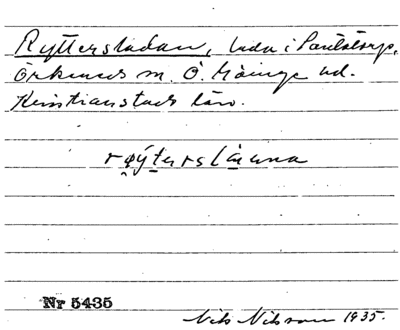 Ryttersladan, lada i Paulstorp,
Örkeneds sn. Ö. Göinge hd.
Kristianstads län.
røýtersláuna
Nr 5435
Nils Nilsson 1935.